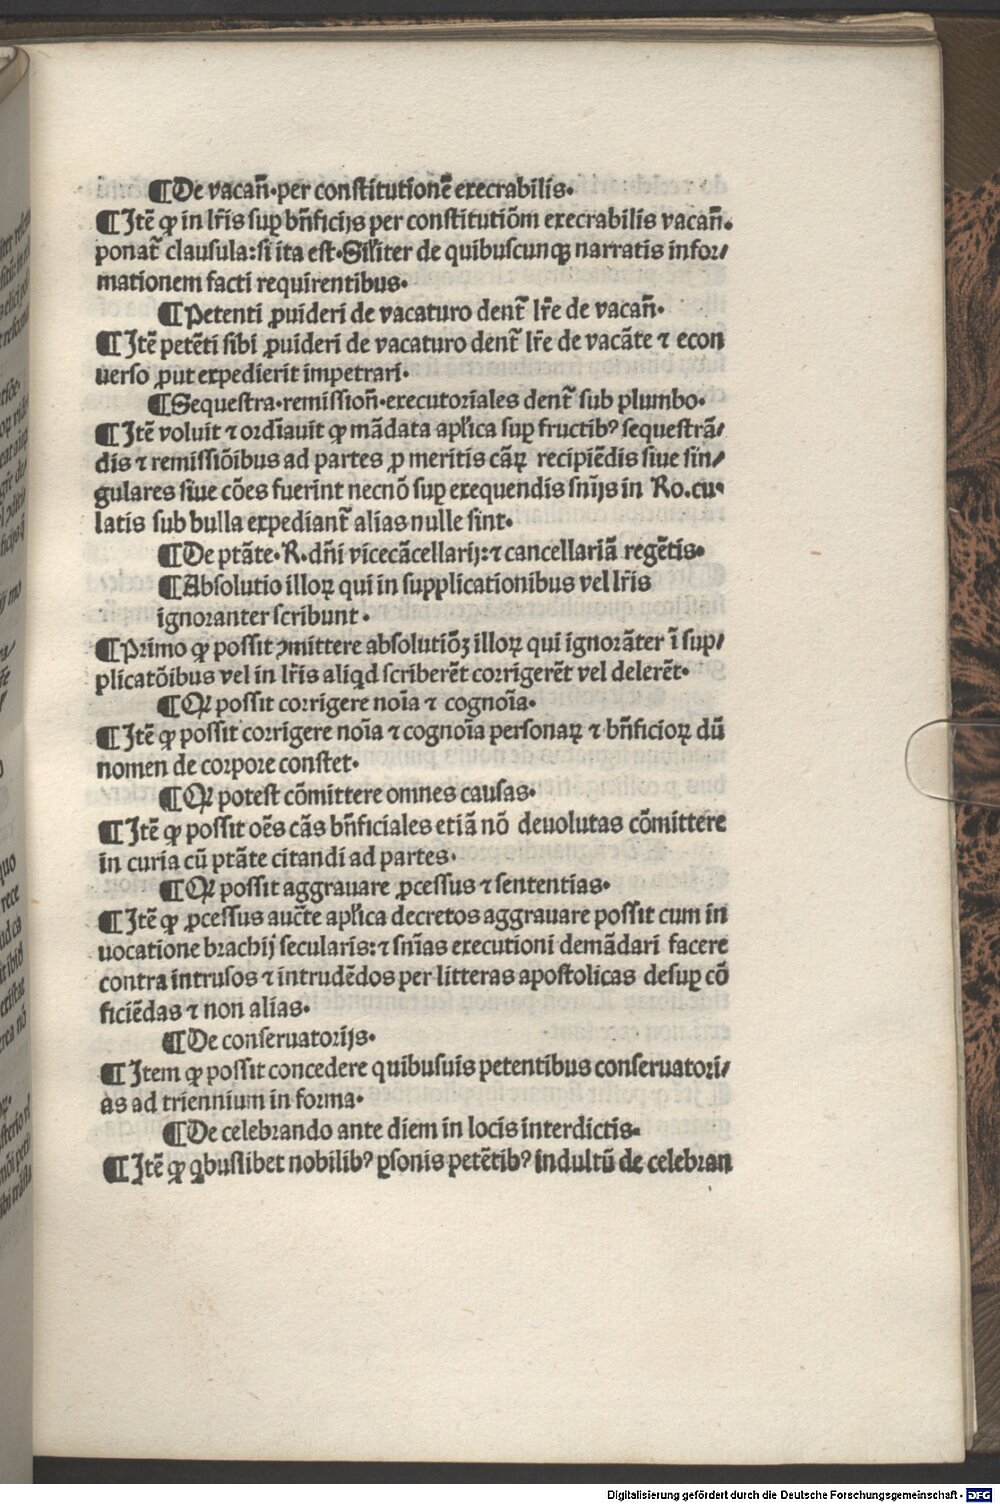 ¶De vacan̄·per constitutionē execrabilis·
¶Itē ꝙ in lr̄is suꝑ bn̄ficijs per constitutiōm execrabilis vacan̄.
ponat᷑ clausula:si ita est·Sil̄iter de quibuscunqꝫ narratis infor/
mationem facti requirentibus·
¶Petenti ꝓuideri de vacaturo dent᷑ lr̄e de vacan̄·
¶Itē petēti sibi ꝓuideri de vacaturo dent᷑ lr̄e de vacāte ⁊ econ
uerso ꝓut expedierit impetrari·
¶Sequestra·remission̄·executoriales dent᷑ sub plumbo·
¶Itē voluit ⁊ ordīauit ꝙ mādata apl̄ica suꝑ fructibꝰ sequestrā/
dis ⁊ remissiōibus ad partes ꝓ meritis cāꝝ recipiēdis siue sin/
gulares siue cōes fuerint necnō suꝑ exequendis sn̄ijs in Ro.cu·
latis sub bulla expediant᷑ alias nulle sint·
¶De ptāte·R·dn̄i vicecācellarij:⁊ cancellariā regētis·
¶Absolutio illoꝝ qui in supplicationibus vel lr̄is
ignoranter scribunt·
¶Primo ꝙ possit ꝯmittere absolutiōꝫ illoꝝ qui ignorāter ī sup/
plicatōibus vel in lr̄is aliqd scriberēt corrigerēt vel delerēt·
¶Qꝙ possit corrigere noīa ⁊ cognoīa·
¶Itē ꝙ possit corrigere noīa ⁊ cognoīa personaꝝ ⁊ bn̄ficioꝝ dū
nomen de corpore constet·
¶Qꝙ potest cōmittere omnes causas·
¶Itē ꝙ possit oēs cās bn̄ficiales etiā nō deuolutas cōmittere
in curia cū ptāte citandi ad partes·
¶Qꝙ possit aggrauare ꝓcessus ⁊ sententias·
¶Itē ꝙ ꝓcessus auc̄te apl̄ica decretos aggrauare possit cum in
uocatione brachij secularis:⁊ sn̄ias executioni demādari facere
contra intrusos ⁊ intrudēdos per litteras apostolicas desuꝑ cō
ficiēdas ⁊ non alias·
¶De conseruatorijs·
¶Item ꝙ possit concedere quibusuis petentibus conseruatori/
as ad triennium in forma·
¶De celebrando ante diem in locis interdictis·
¶Itē ꝙ qbuslibet nobilibꝰ ꝑsonis petētibꝰ indultū de celebran
Digitalisierung gefördert durch die Deutsche Forschungsgemeinschaft · DFG